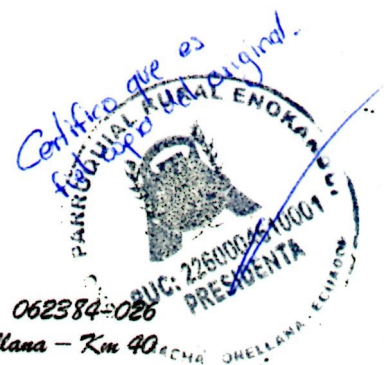 Certifico que es
fiel copia del original.
PARROQUIAL RURAL ENOKANQUI
RUC: 2260004510001
PRESIDENTA
ORELLANA - ECUADOR
062384-026
llana – Km 40